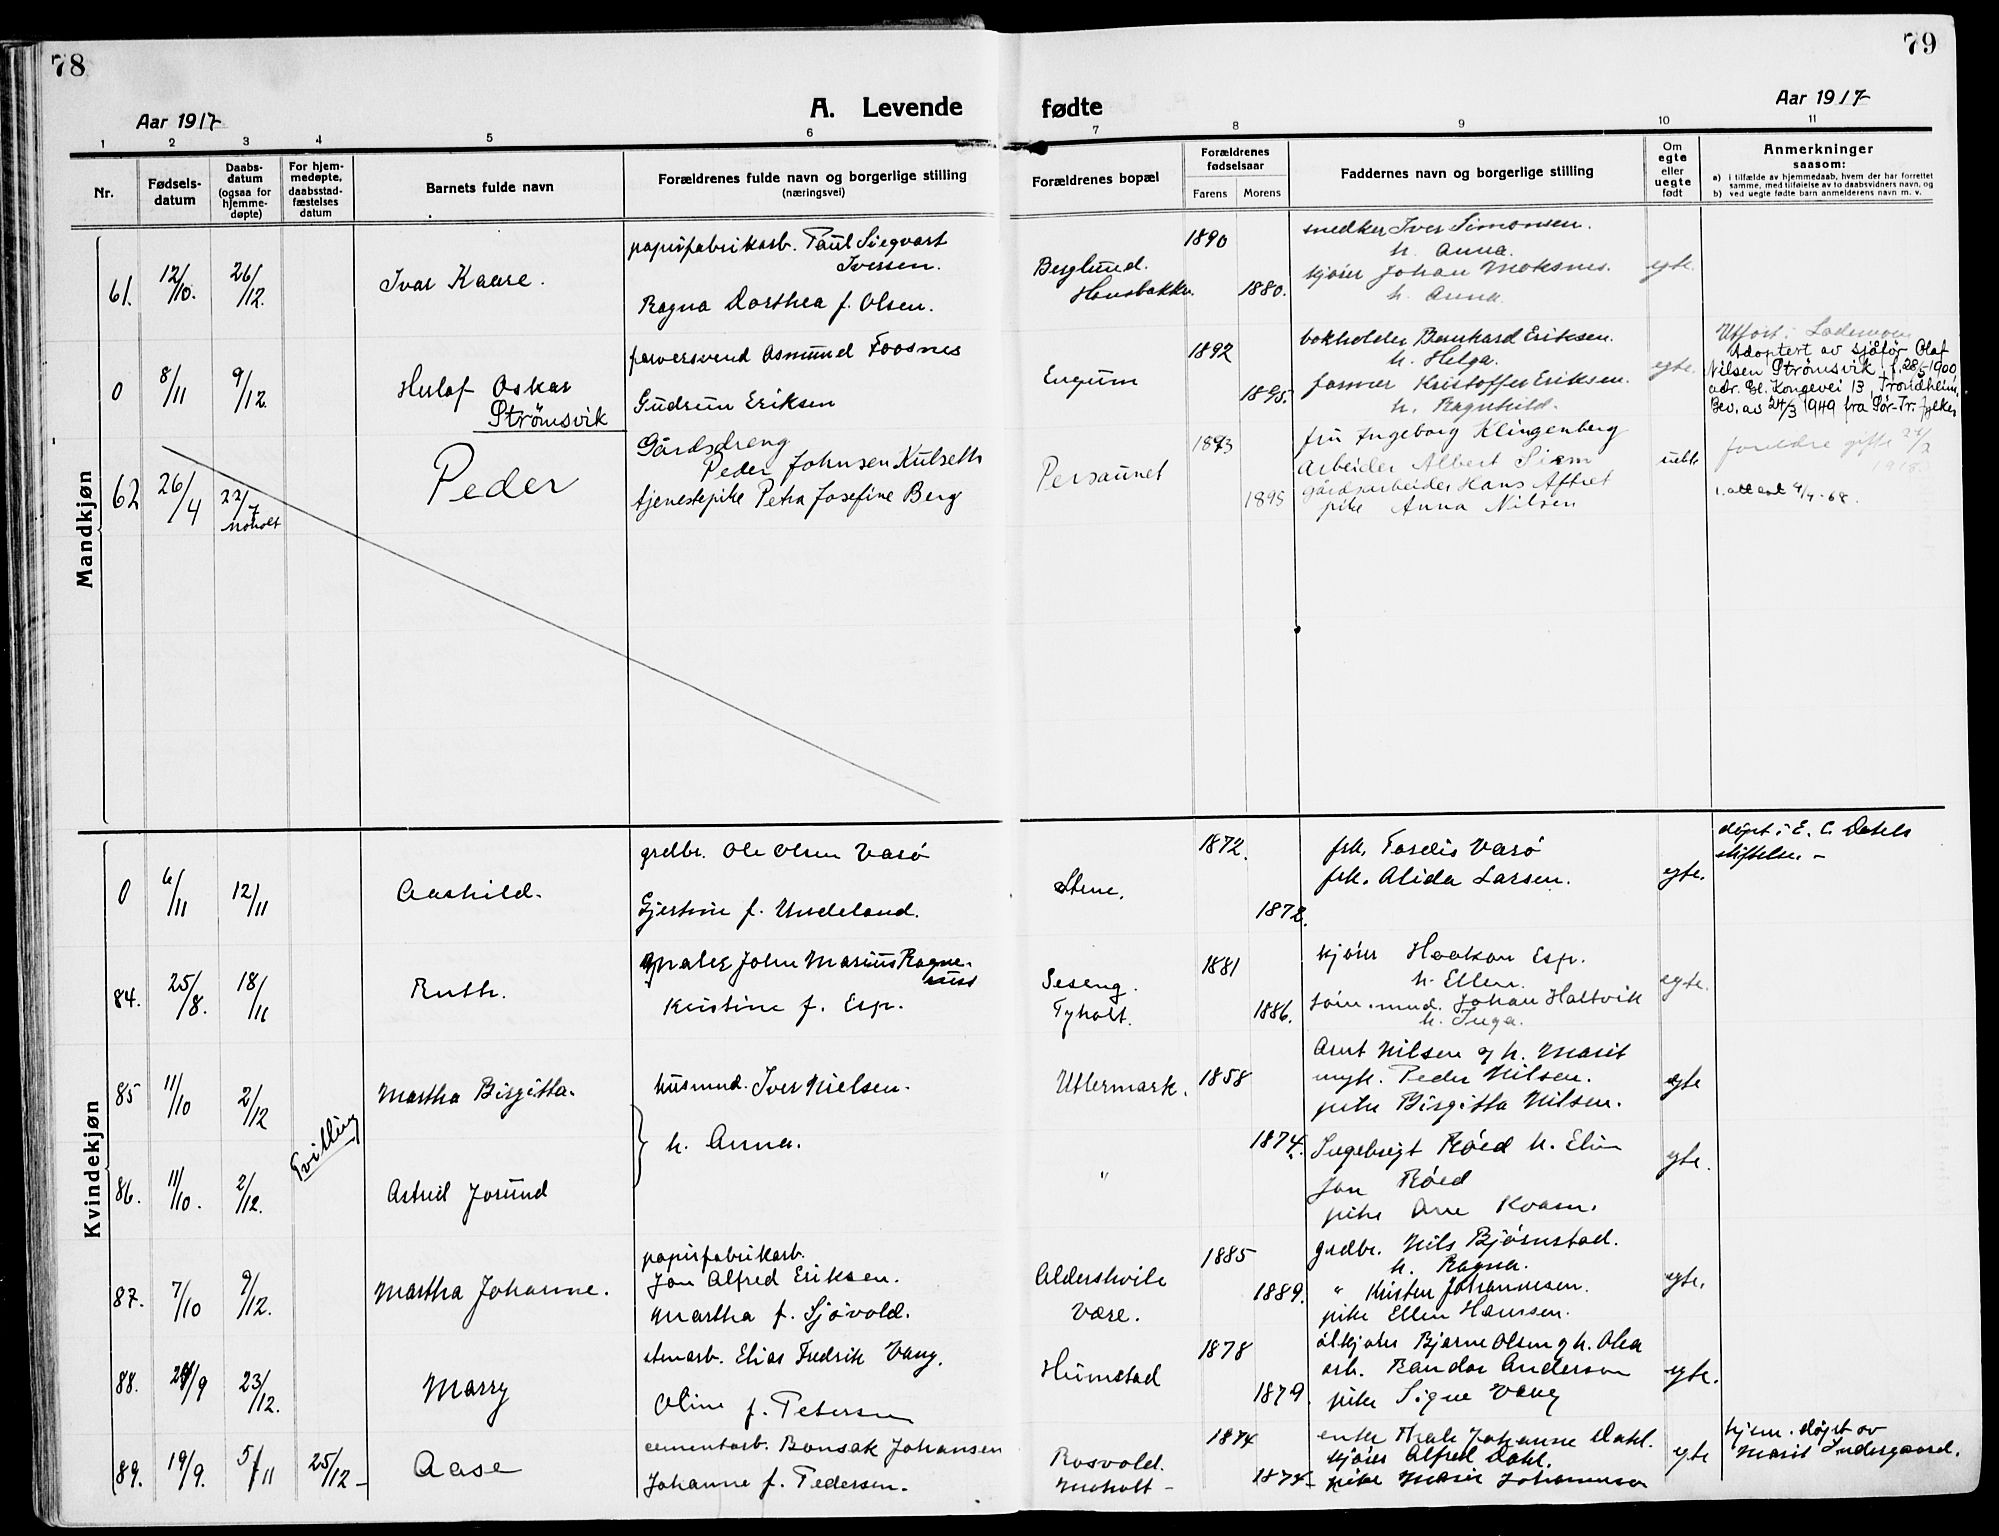 78
79
A. Levende fødte
Aar 1917
Aar 1917
1 2 3 4 5 6 7 8 9 10 11
Nr.
Fødsels-
datum
Daabs-
datum
(ogsaa for
hjemme-
døpte)
For hjem-
medøpte,
daabsstad-
fæstelses
datum
Barnets fulde navn
Forældrenes fulde navn og borgerlige stilling
(næringsvei)
Forældrenes bopæl
Forældrenes
fødselsaar
Farens Morens
Faddernes navn og borgerlige stilling
Om
egte
eller
uegte
født
Anmerkninger
saasom:
a) i tilfælde av hjemmedaab, hvem der har forrettet
samme, med tilføielse av to daabsvidners navn, og
b) ved uegte fødte barn anmelderens navn m. v.
Mandkjøn
61. 12/10. 26/12. Ivar Kaare.
papirfabrikarb. Paul Siegvart
Iversen.
Ragna Dorthea f. Olsen.
Berglund.
1890
1880.
snedker Iver Simonsen.
h. Anna.
kjører Johan Moksnes.
h. Anna.
egte.
0 8/11 9/12. Oskar
Strømsvik
farversvend Asmund Foosnes
Gudrun Eriksen
Engum
1892
1895.
bokholder Bernhard Eriksen.
h. Helga.
farmer Kristoffer Eriksen.
h. Ragnhild.
egte.
Adoptert av sjåfør Olaf
Nilsen Strømsvik, f. 28/5-1900,
adr. Gl. Kongevei 13, Trondheim.
Bev. av 24/3 1949 fra Sør-Tr. fylke
62 26/4 22/7
Moholt
Peder
Gårdsdreng
Peder Johnsen Kulseth
tjenestepike Petra Josefine Berg
Persaunet
1893
1895
fru Ingeborg Klingenberg
Arbeider Albert Siem
Gårdsarbeider Hans Aftret
pike Anna Nilsen
foreldre gift
1918
Kvindekjøn
0 6/11 12/11 Aashild.
grdbr. Ole Olsen Varsø
Gjertine f. Undeland.
Stene.
1872.
1872.
frk. Tordis Varsø
frk. Alida Larsen.
egte.
døpt i E. C. Dahls
stiftelse. –
84. 25/8. 18/11 Ruth.
maler John Marius Ragne-
Kristine f. Esp.
Seseng.
Tyholt.
1881
1886.
kjører Haakon Esp.
h. Ellen.
Johan Hallvik
h. Inga.
egte.
85 11/10 2/12 Martha Birgitta.
husmd. Iver Nielsen.
h. Anna.
Uttermark.
1858
1874.
Arnt Nilsen og h. Marit
myh. Peder Nilsen.
pike Birgitta Nilsen.
egte
Tvilling
86. 11/10. 2/12. Astrid Jorund
"
Ingebrigt Røed h. Elin
Jon Røed
pike Ane Kvam.
egte.
87. 7/10 9/12. Martha Johanne.
papirfabrikarb.
Jon Alfred Eriksen.
Martha f. Sjøvold.
Aldershvile
Være.
1885
1889.
grdbr. Nils Bjørnstad.
h. Ragna.
" Kristen Johannesen.
pike Ellen Hanssen.
egte.
88. 23/12. Marry
stenarb. Elias Fredrik Vang.
Oline f. Petersen
Humstad
1878
1879.
ølkjører Bjarne Olsen og h. Olea
arb. Randor Anderson
pike Signe Vang
egte.
89. 19/9. 5/11 25/12 – Aase
cementarb. Bonsak Johansen
Johanne f. Pedersen.
Rosvold.
Moholt –
1874
1874.
enke Thale Johanne Dahl.
kjører Alfred Dahl.
pike Marie Johannesen
egte
hjem. døpt av
Marit Indergaard.